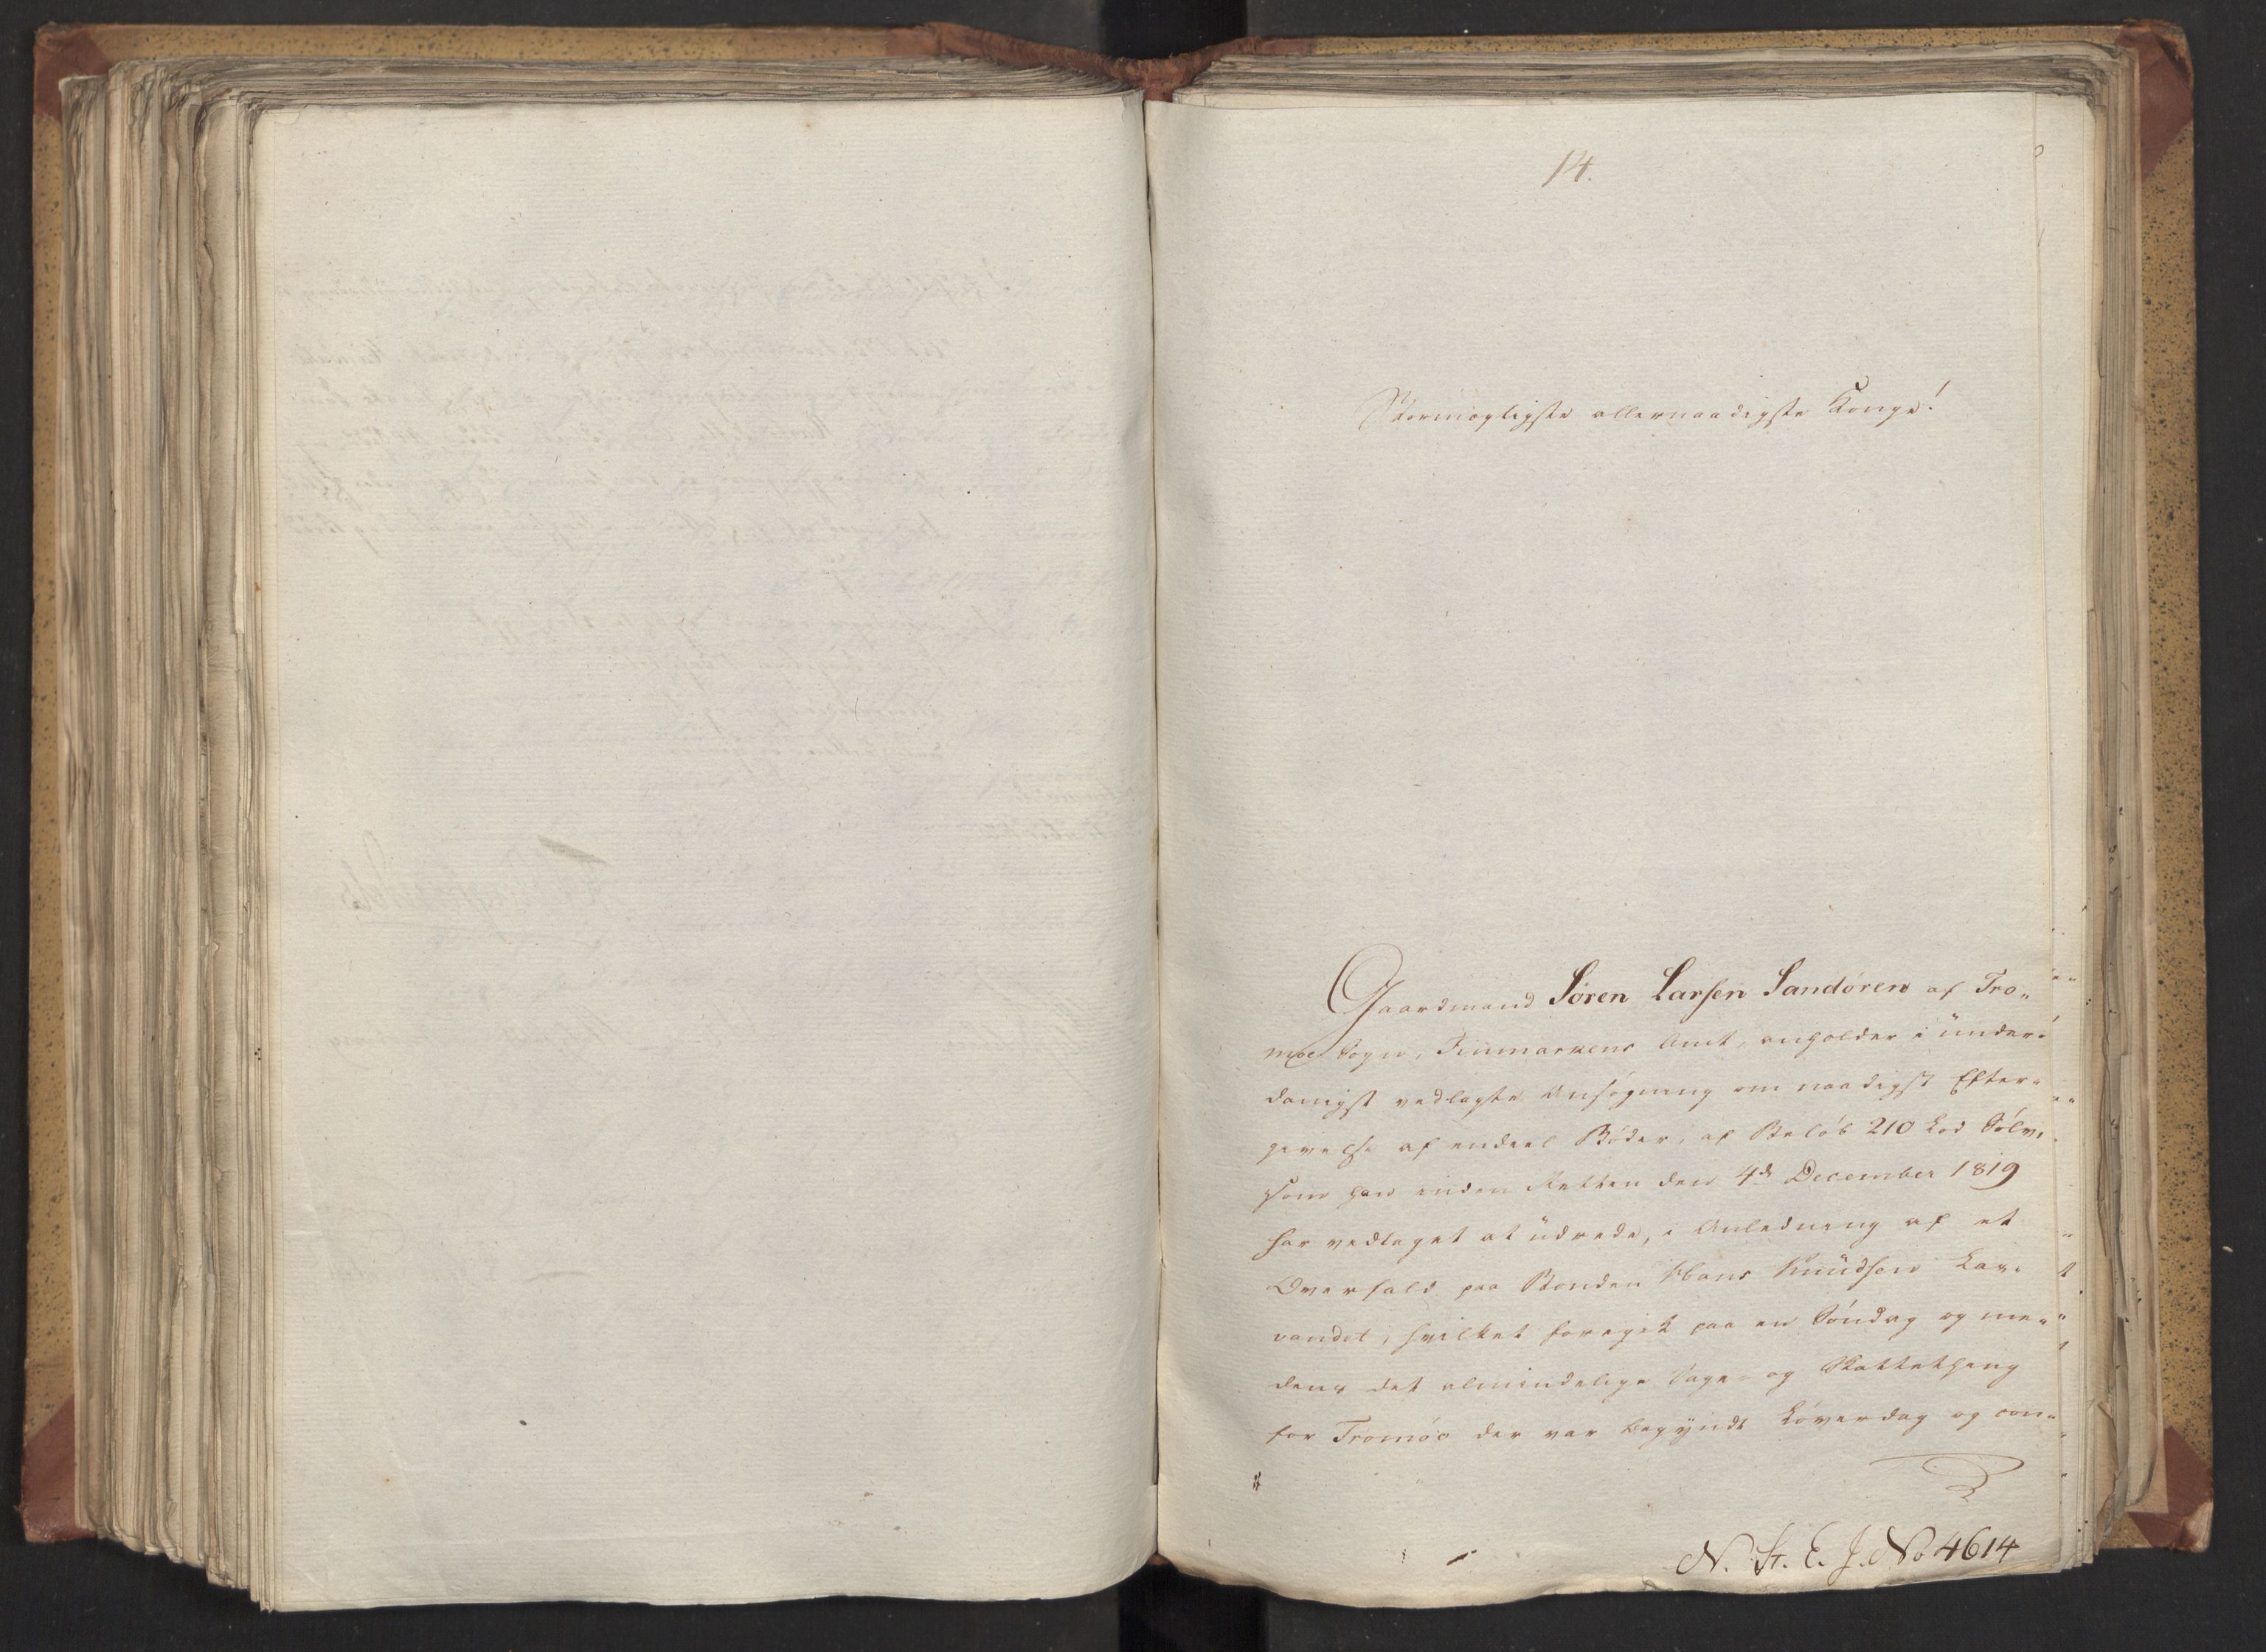 14.
Stormægtigste allernaadigste Konge!
Gaardmand Søren Larsen Sandøren af Tro„
msøe Sogn, Finmarkens Amt, anholder i under„
danigst vedlagte Ansøgning om naadigst Efter„
givelse af endeel Bøder, af Beløb 210 Lod Sølv,
som han inden Retten den 4de December 1819
har vedtaget at udrede, i Anledning af et
Overfald paa Bonden Hans Knudsen Lax„
vandet, hvilket foregik paa en Søndag og me„
dens det almindelige Sage- og Skattething
for Tromsøe der var begyndt Løverdag og con„
N. St. E. J. No 4614